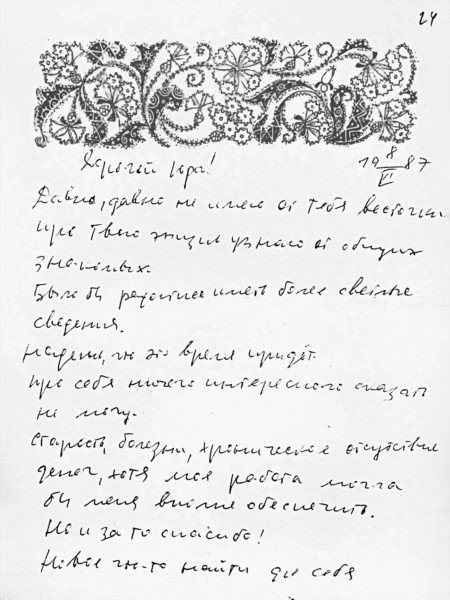 24
Дорогой Юра!
19 8/VI 87
Давно, давно не имею от Тебя весточки.
Про Твою жизнь узнаю от общих
знакомых.
Было бы радостнее иметь более светлые
сведения.
Надеюсь, что это время придёт.
Про себя ничего интересного сказать
не могу.
Старость, болезни, хроническое отсутствие
денег, хотя моя работа могла
бы меня вполне обеспечить.
Но и за то спасибо!
Новое что-то найти для себя